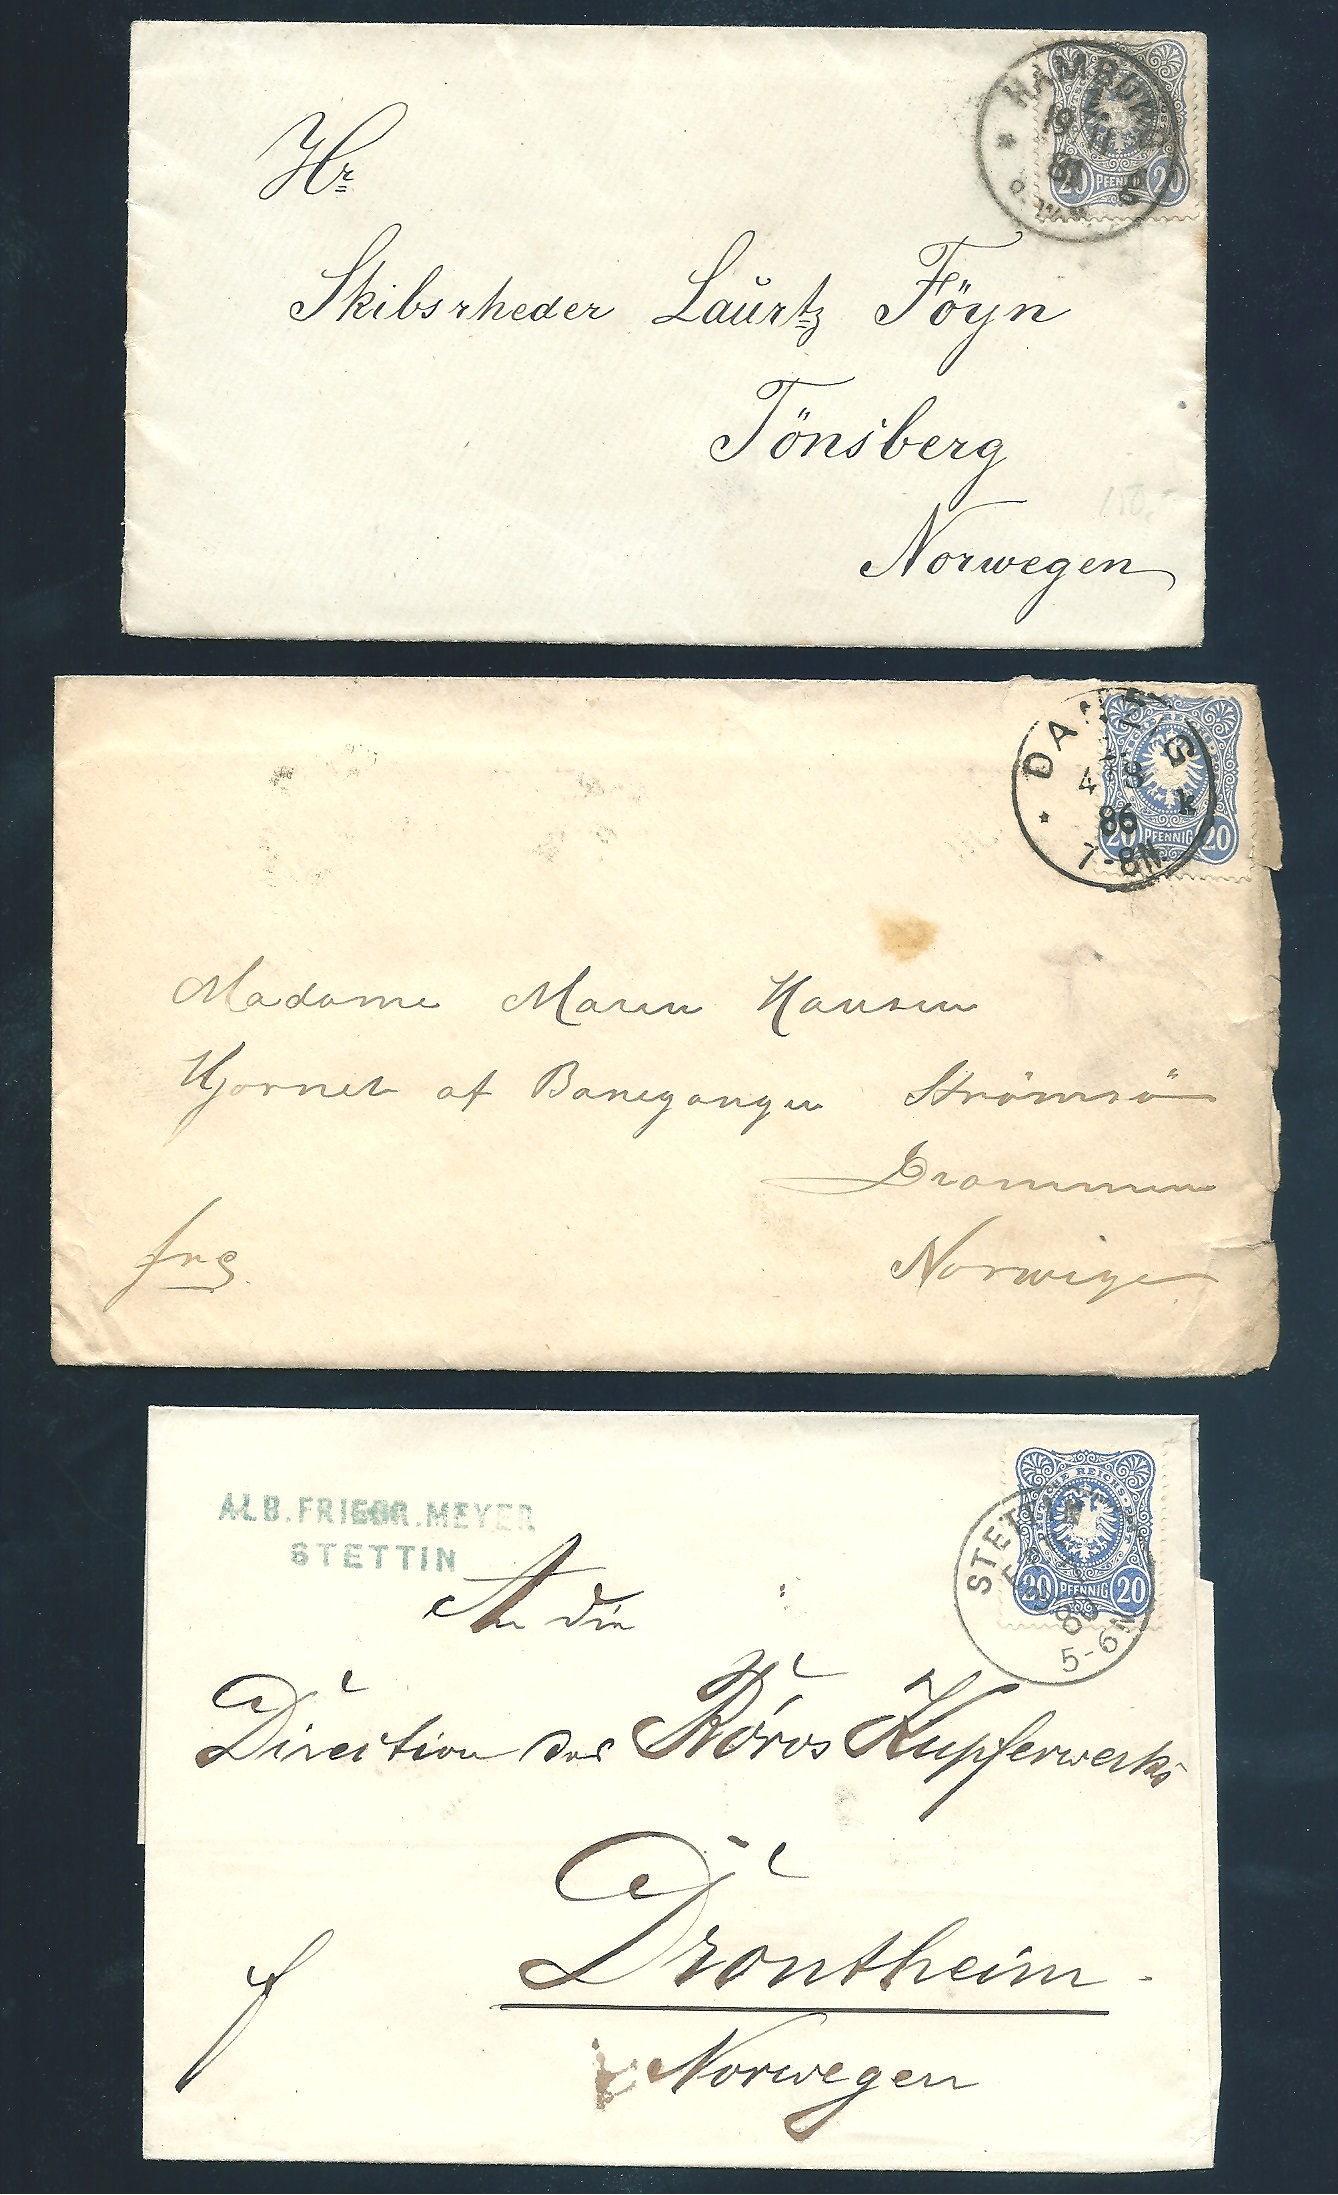 HAMBURG
19 11
81
20 PFENNIG 20
Hr
Skibsrheder Laŭrtz Föyn
Tönsberg
Norwegen
DANZIG
4 8
86 k
7-8N.
20 PFENNIG 20
Madame Maren Hansen
Hjornet af Banegangen Strömsö
Drammen
frc.
Norwigen
DEUTSCHE REICHS-POST
20 PFENNIG 20
STETTIN
80
5-6N
ALB. FRIEDR. MEYER
STETTIN
An die
Direction des Röros Kupferwerks
Drontheim.
f
Norwegen